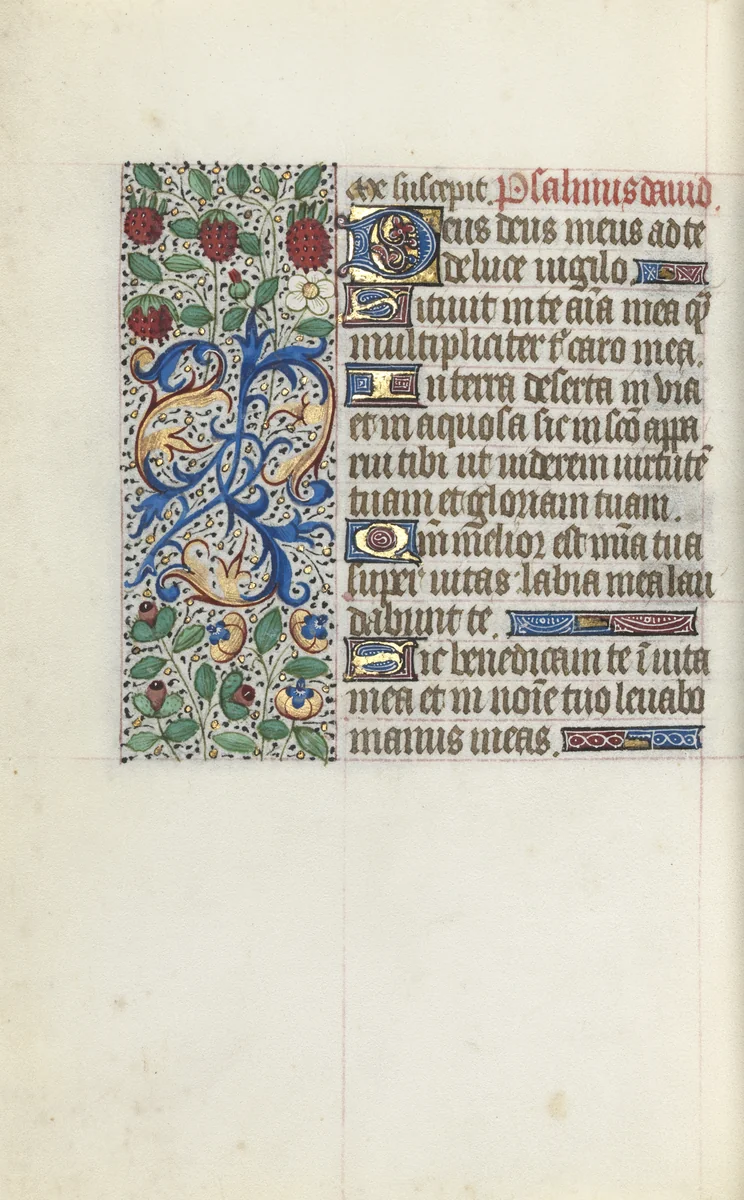 me suscepit. Psalmus dauid.
Deus deus meus ad te
de luce uigilo.
Sitiuit in te aīa mea q̄
multipliciter t̄ caro mea.
In terra deserta in via
et in aquosa sic in scō appa
rui tibi ut uiderem uirtutē
tuam et gloriam tuam.
Qm̄ melior est mīa tua
super uitas labia mea lau
dabunt te.
Sic benedicam te ī uita
mea et in noīe tuo leuabo
manus meas.